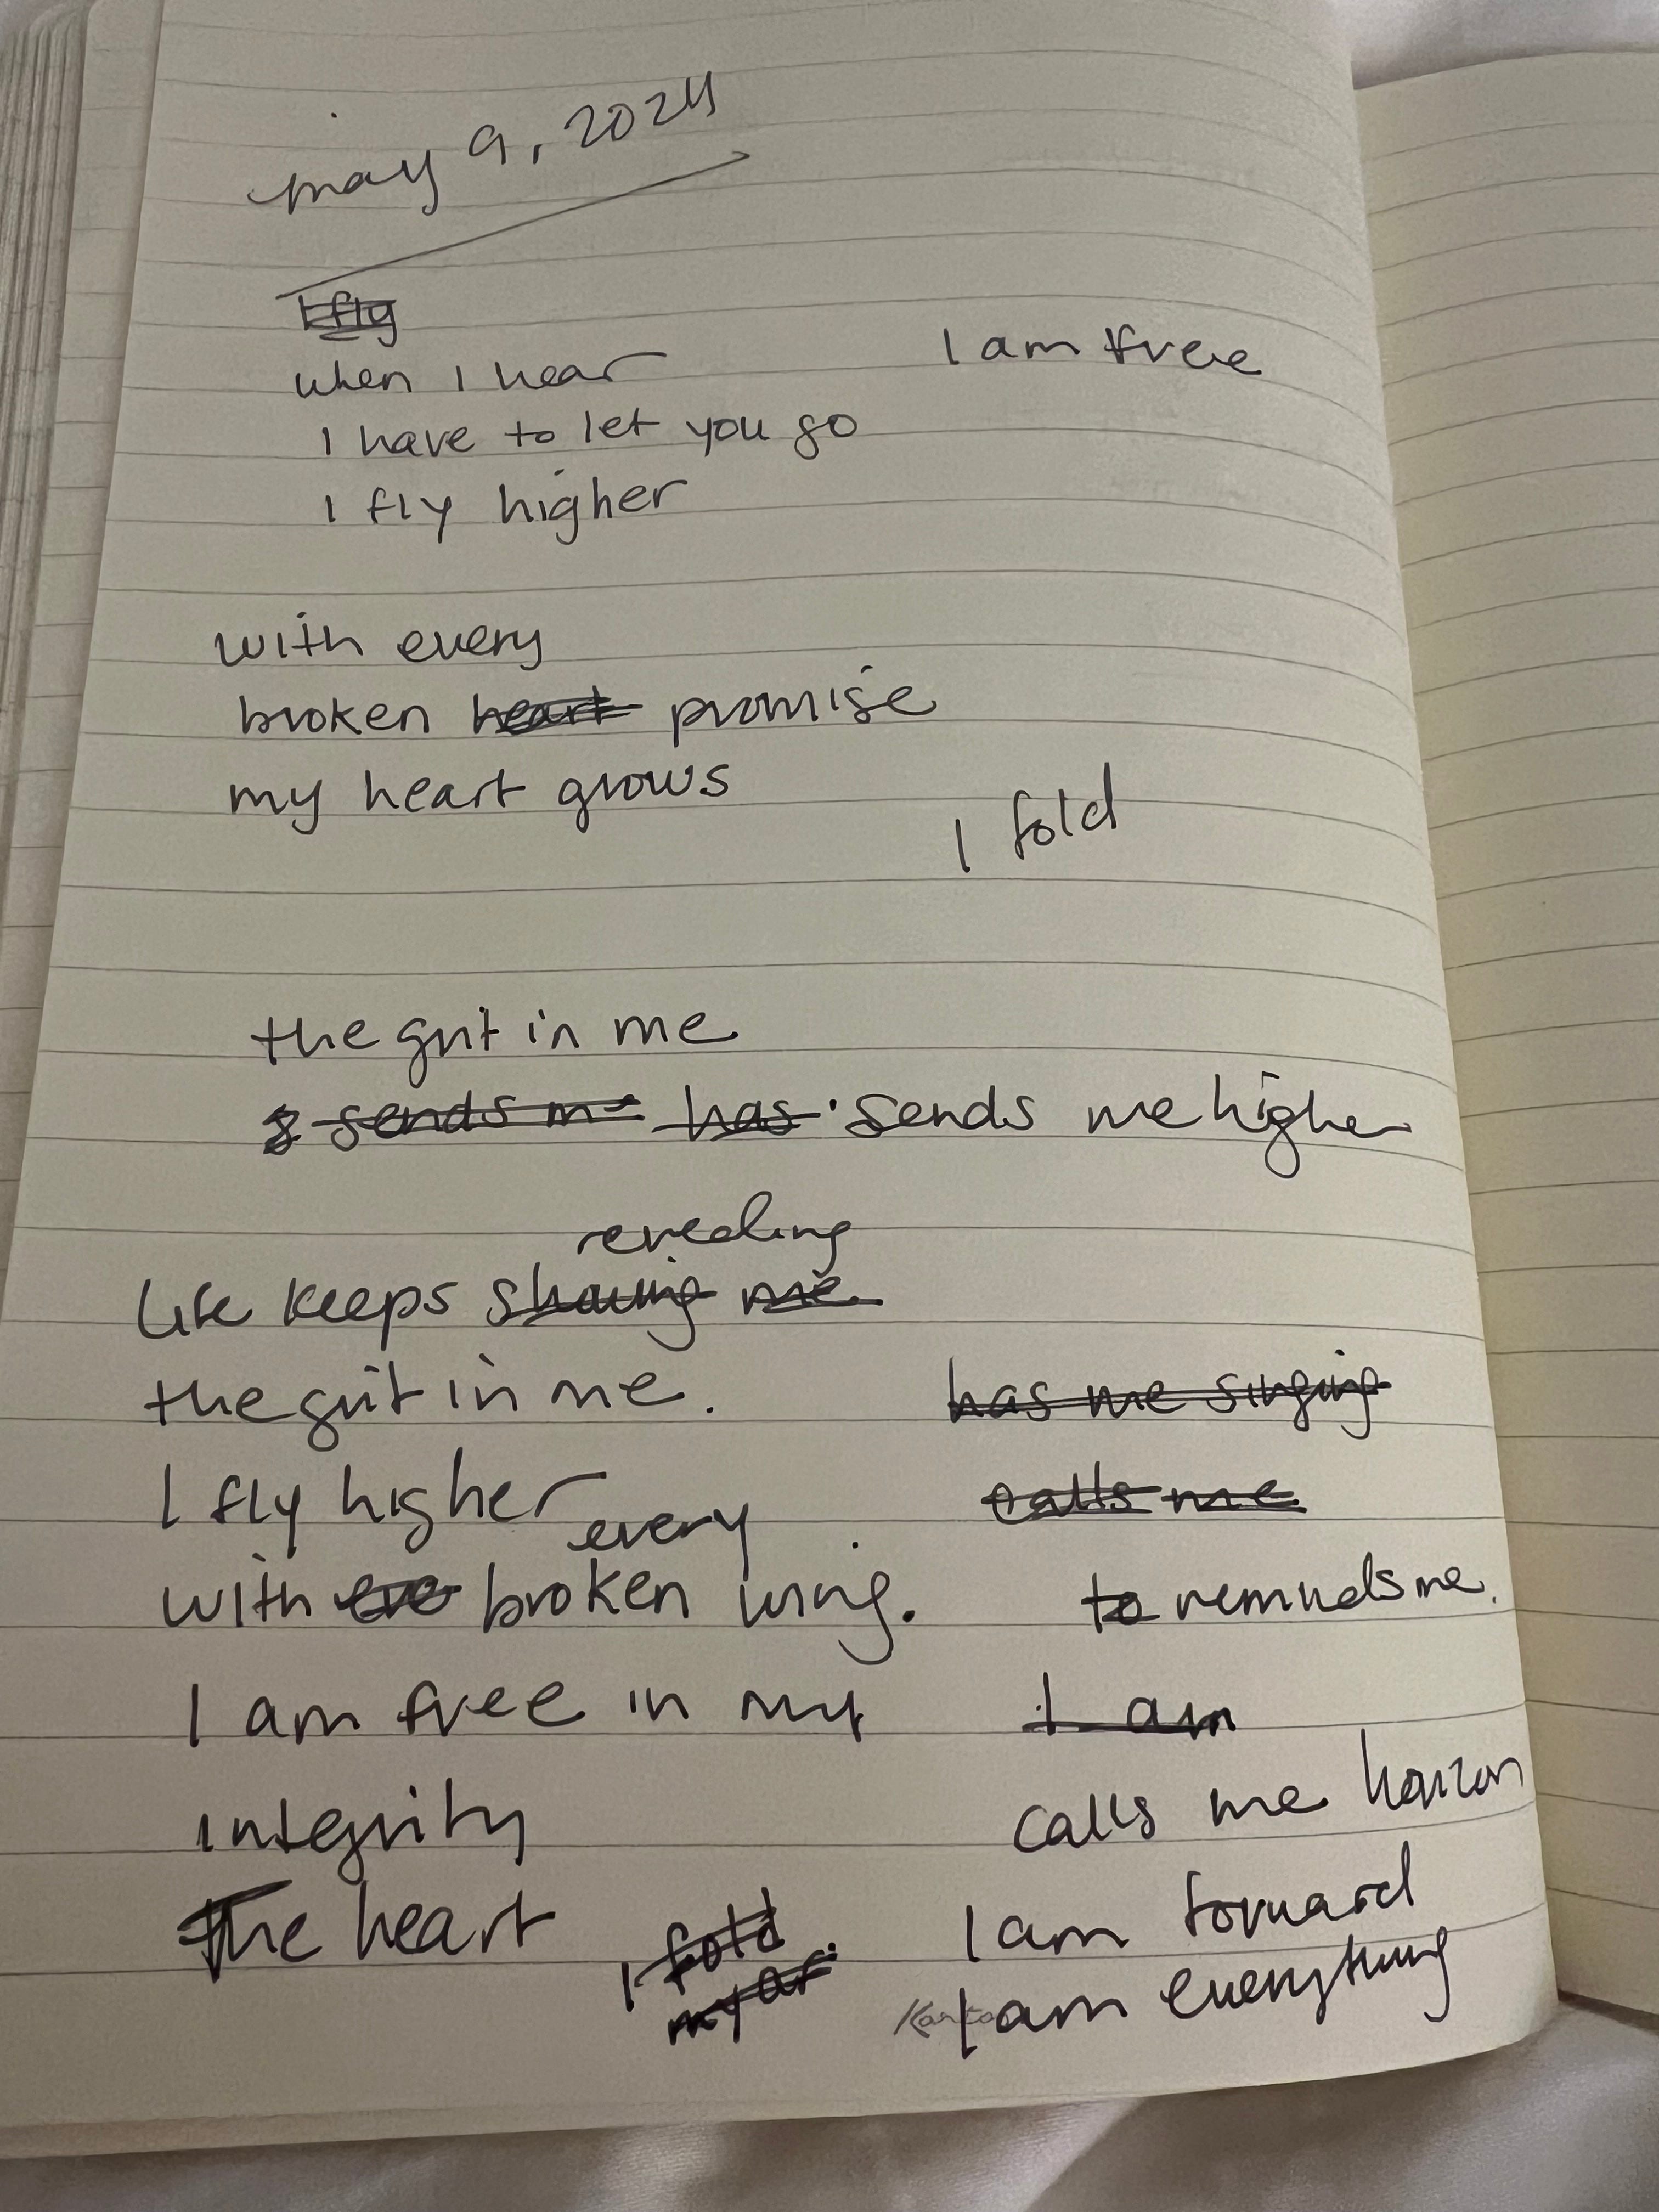 may 9, 2024
I fly
when I hear
I am free
I have to let you go
I fly higher
with every
broken heart promise
my heart grows
I fold
the grit in me
sends me has sends me higher
revealing
Life keeps showing me
the grit in me.
has me singing
I fly higher
calls me
every
with eve broken wing.
to reminds me.
I am free in my
I am
integrity
calls me horizon
The heart
I fold
my
I am forward
I am everything